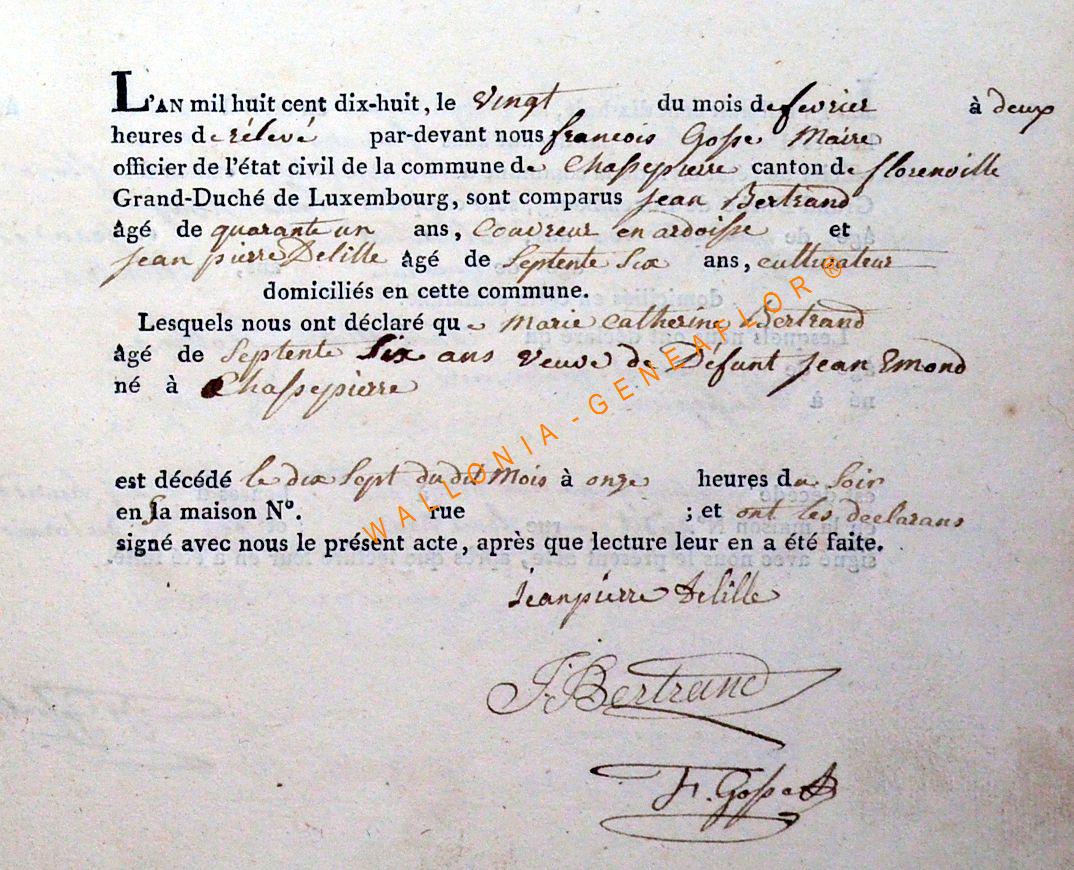 L'AN mil huit cent dix-huit, le vingt du mois de fevrier à deux
heures de rélevé par-devant nous francois Gosse Maire
officier de l'état civil de la commune de Chassepierre canton de florenville
Grand-Duché de Luxembourg, sont comparus jean Bertrand
âgé de quarante un ans, couvreur en ardoisse et
jean pierre Delille âgé de Septente Six ans, cultivateur
domiciliés en cette commune.
Lesquels nous ont déclaré que Marie Catherine Bertrand
âgé de Septente Six ans veuve de Défunt jean Emond
né à Chassepierre
est décédé le dix Sept du dit Mois à onze heures du Soir
en Sa maison N°. rue ; et ont les declarans
signé avec nous le présent acte, après que lecture leur en a été faite.
WALLONIA - GENEAFLOR ®
Jeanpierre Delille
J. Bertrand
F. Gosse